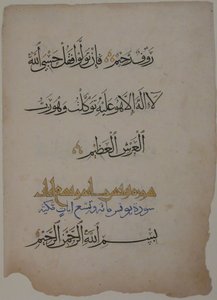 رؤوف رحيم فإن تولوا فقل حسبي الله
لا إله إلا هو عليه توكلت وهو رب
العرش العظيم
سورة يونس مائة وتسع آيات مكية
بسم الله الرحمن الرحيم